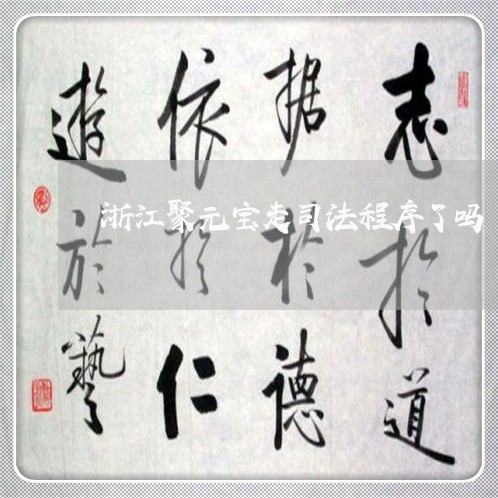 志於道
据於德
依於仁
遊於藝
浙江聚元宝走司法程序了吗